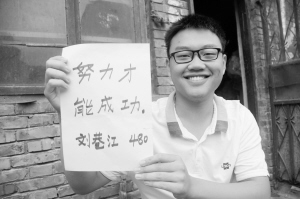 努力才
能成功。
刘苍江 480